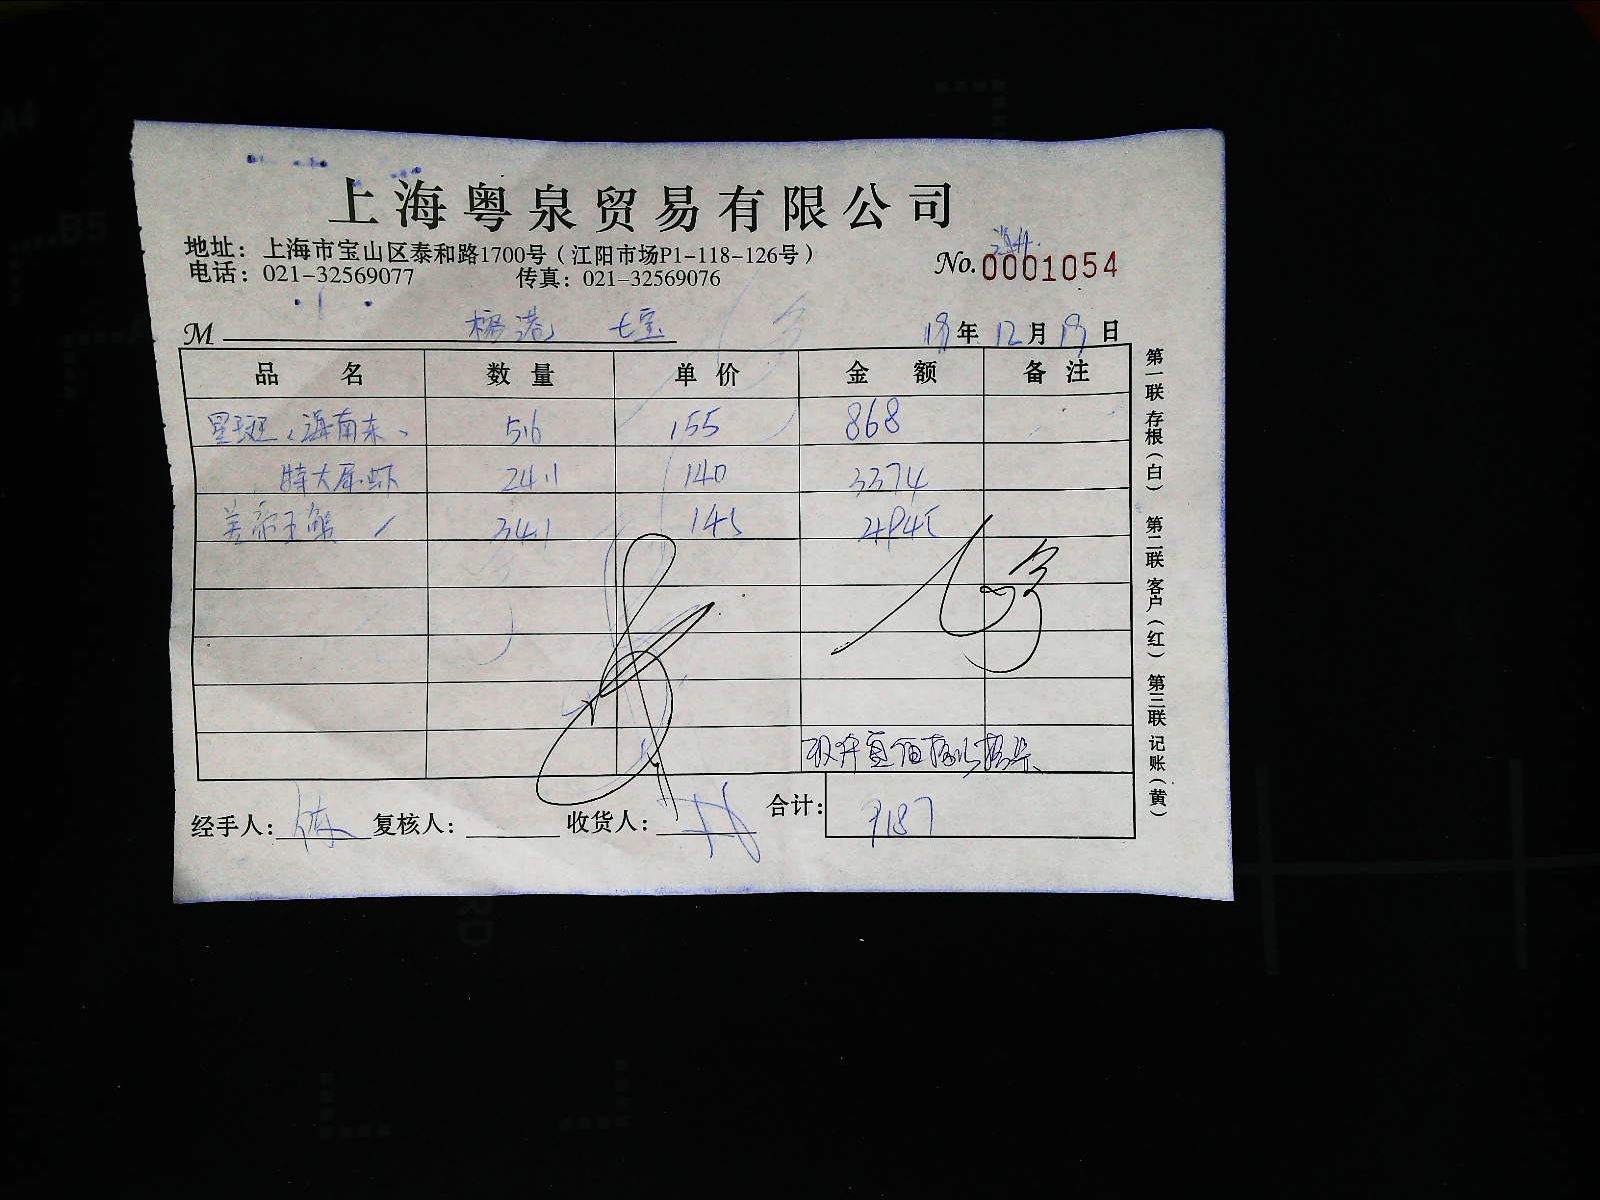 上海粤泉贸易有限公司
地址：上海市宝山区泰和路1700号（江阳市场P1-118-126号）
电话：021-32569077 传真：021-32569076
No.0001054
M 七宝 年12月19日
品名 数量 单价 金额 备注
星斑（海南东） 5.6 155 868
特大 虾 24.1 140 3374
美帝王蟹 34.1 145 4945
经手人：陈 复核人： 收货人： 合计：9187
第一联 存根（白） 第二联 客户（红） 第三联 记账（黄）